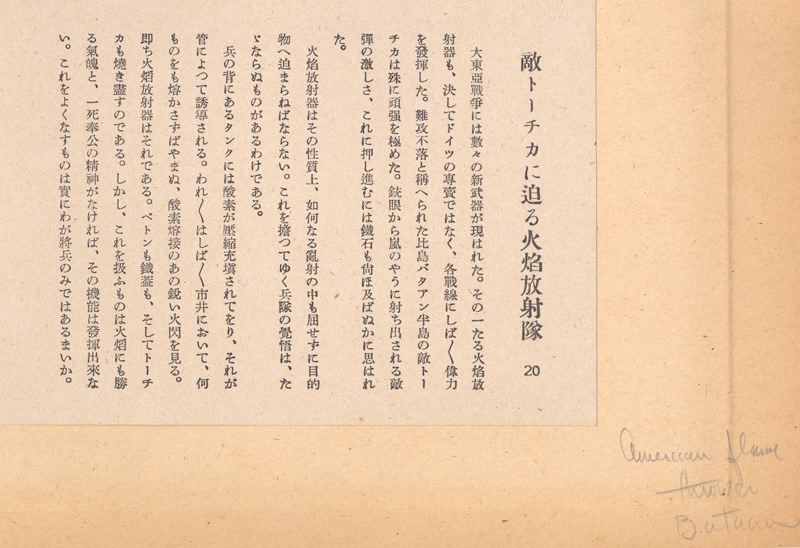 敵トーチカに迫る火焰放射隊 20
大東亞戰爭には數々の新武器が現はれた。その一たる火焰放
射器も、決してドイツの專賣ではなく、各戰線にしば〱偉力
を發揮した。難攻不落と稱へられた比島バタアン半島の敵トー
チカは殊に頑强を極めた。銃眼から嵐のやうに射ち出される敵
彈の激しさ、これに押し進むには鐵石も尙ほ及ばぬかに思はれ
た。
火焰放射器はその性質上、如何なる亂射の中も屈せずに目的
物へ迫まらねばならない。これを擔つてゆく兵隊の覺悟は、た
ゞならぬものがあるわけである。
兵の背にあるタンクには酸素が壓縮充塡されてをり、それが
管によつて誘導される。われ〱はしば〱市井において、何
ものをも熔かさずばやまぬ、酸素熔接のあの銳い火閃を見る。
卽ち火焰放射器はそれである。ベトンも鐵蓋も、そしてトーチ
カも燒き盡すのである。しかし、これを扱ふものは火焰にも勝
る氣魄と、一死奉公の精神がなければ、その機能は發揮出來な
い。これをよくなすものは實にわが將兵のみではあるまいか。
American flame
thrower
Bataan